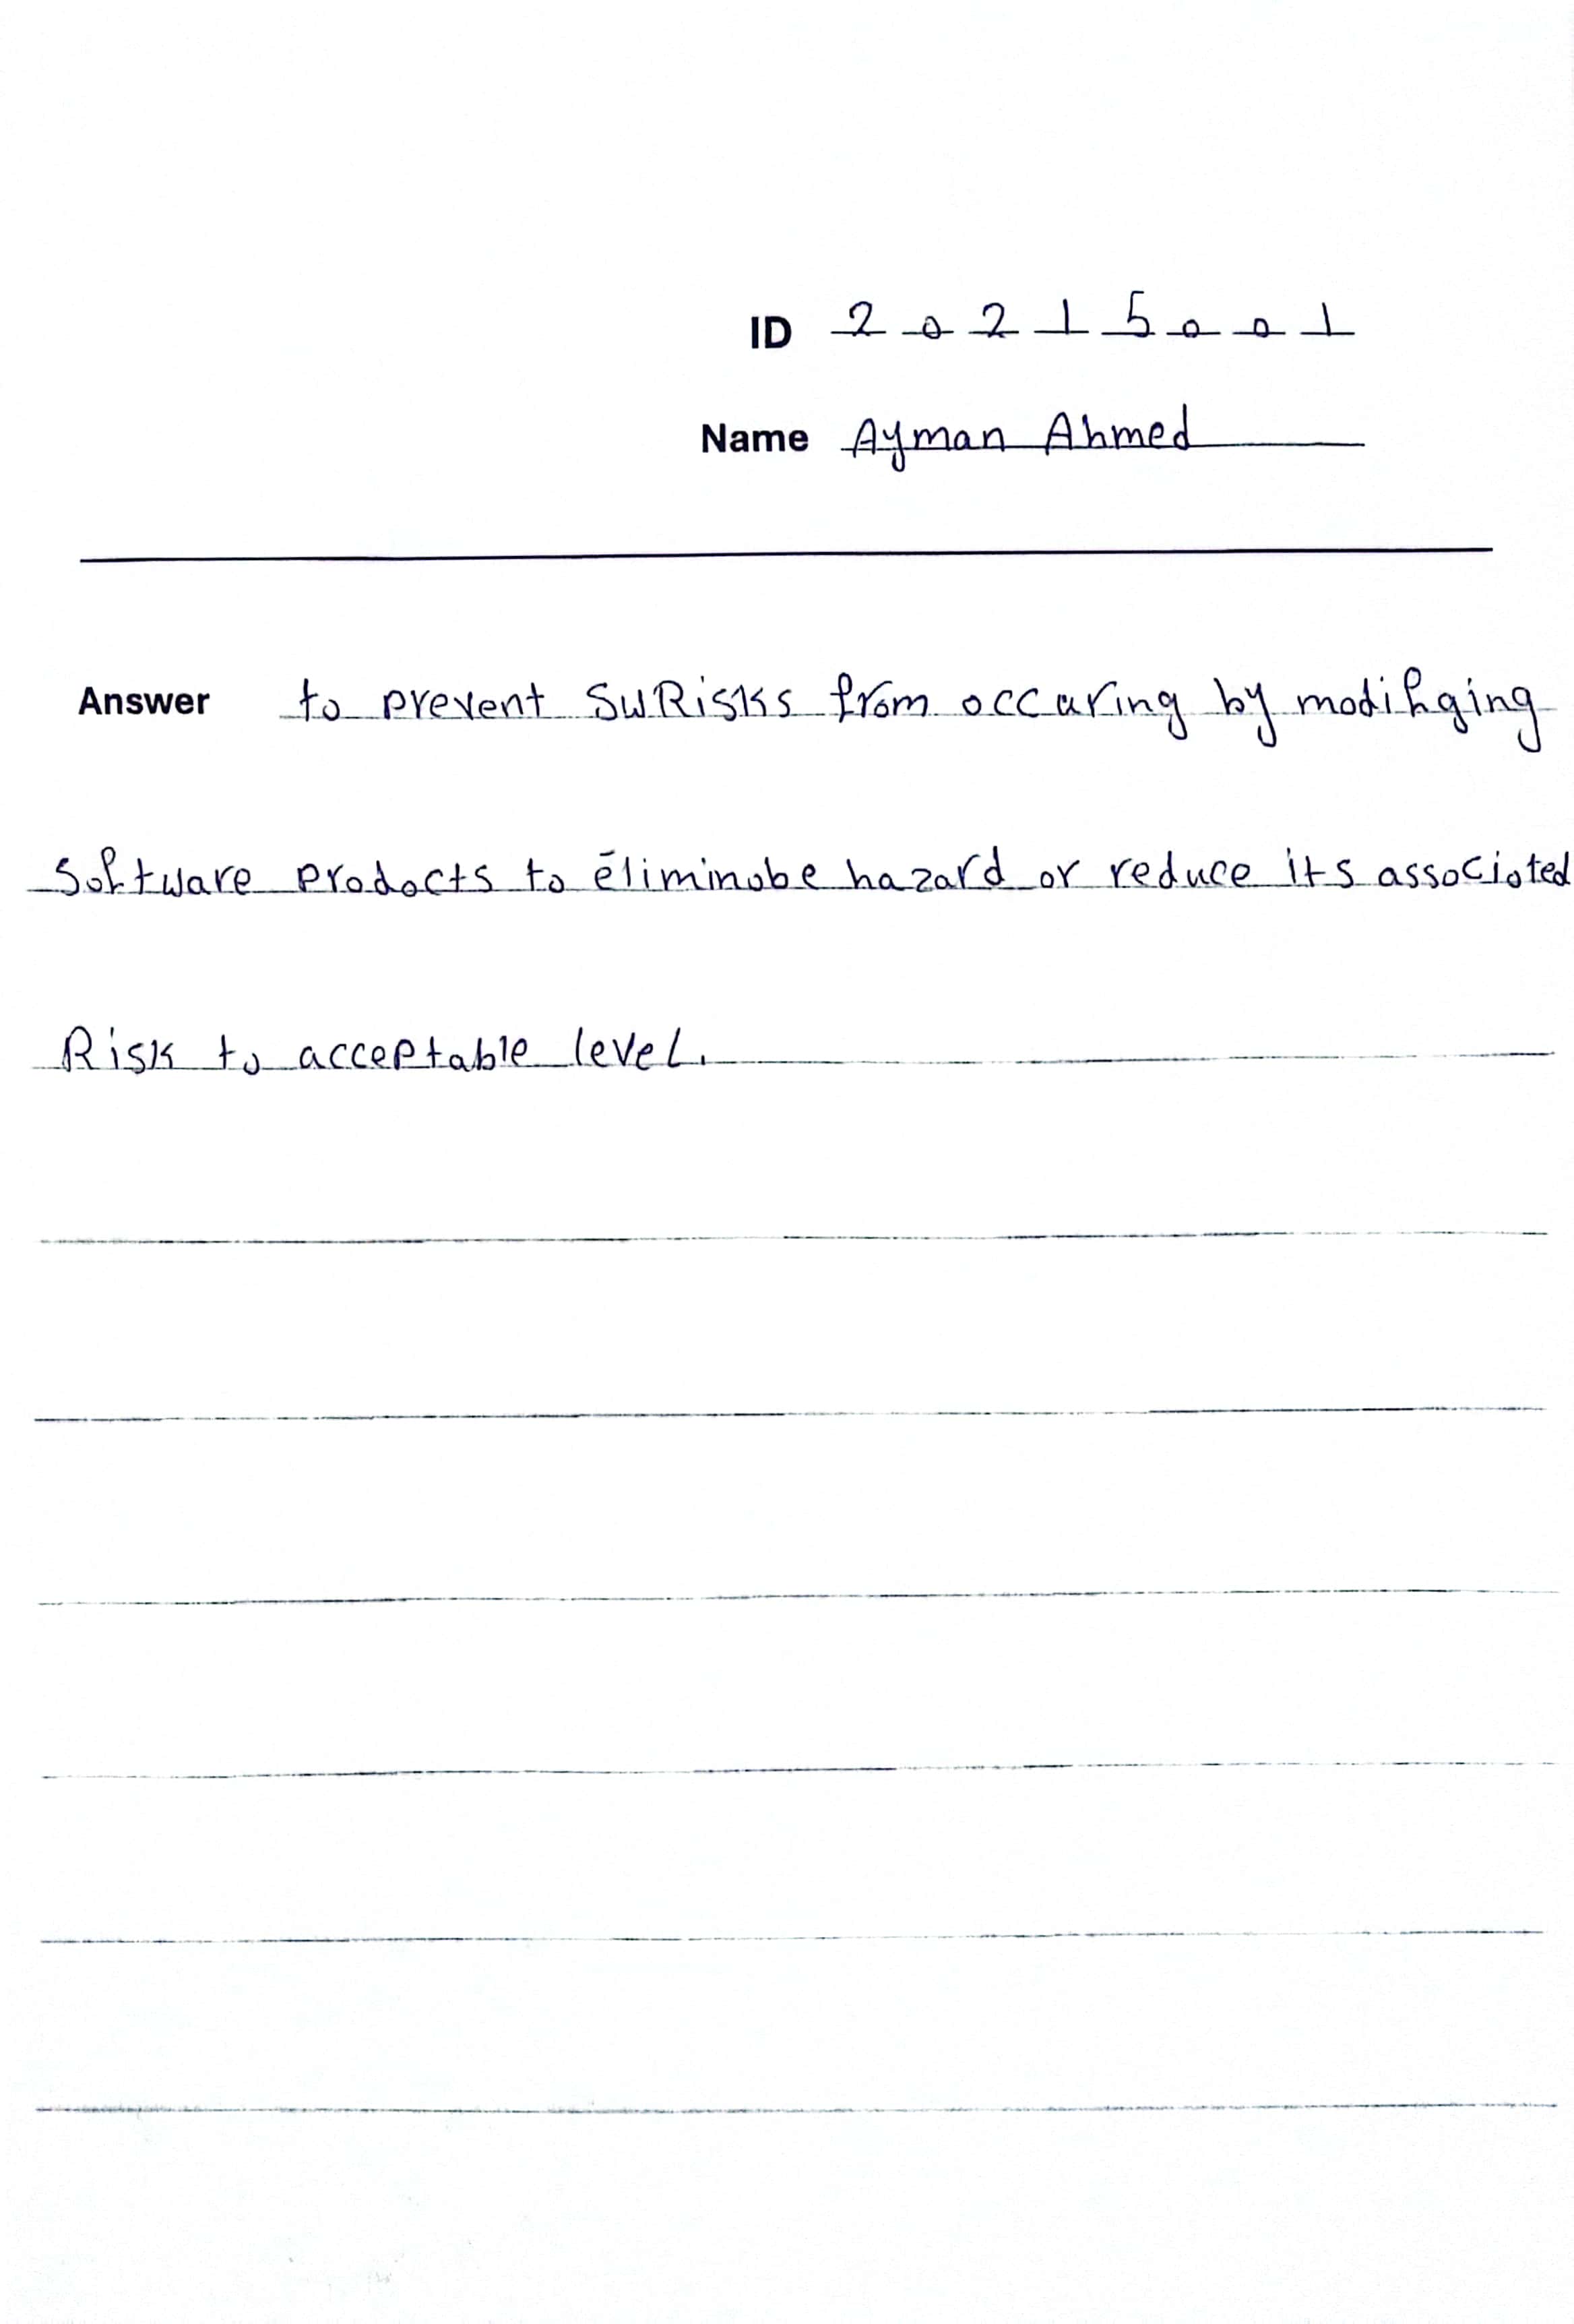 ID 20215001
Name Ayman Ahmed
Answer to prevent SWRisks from occuring by modifiging
Software prodocts to eliminobe hazard or reduce its associoted
Risk to acceptable level.